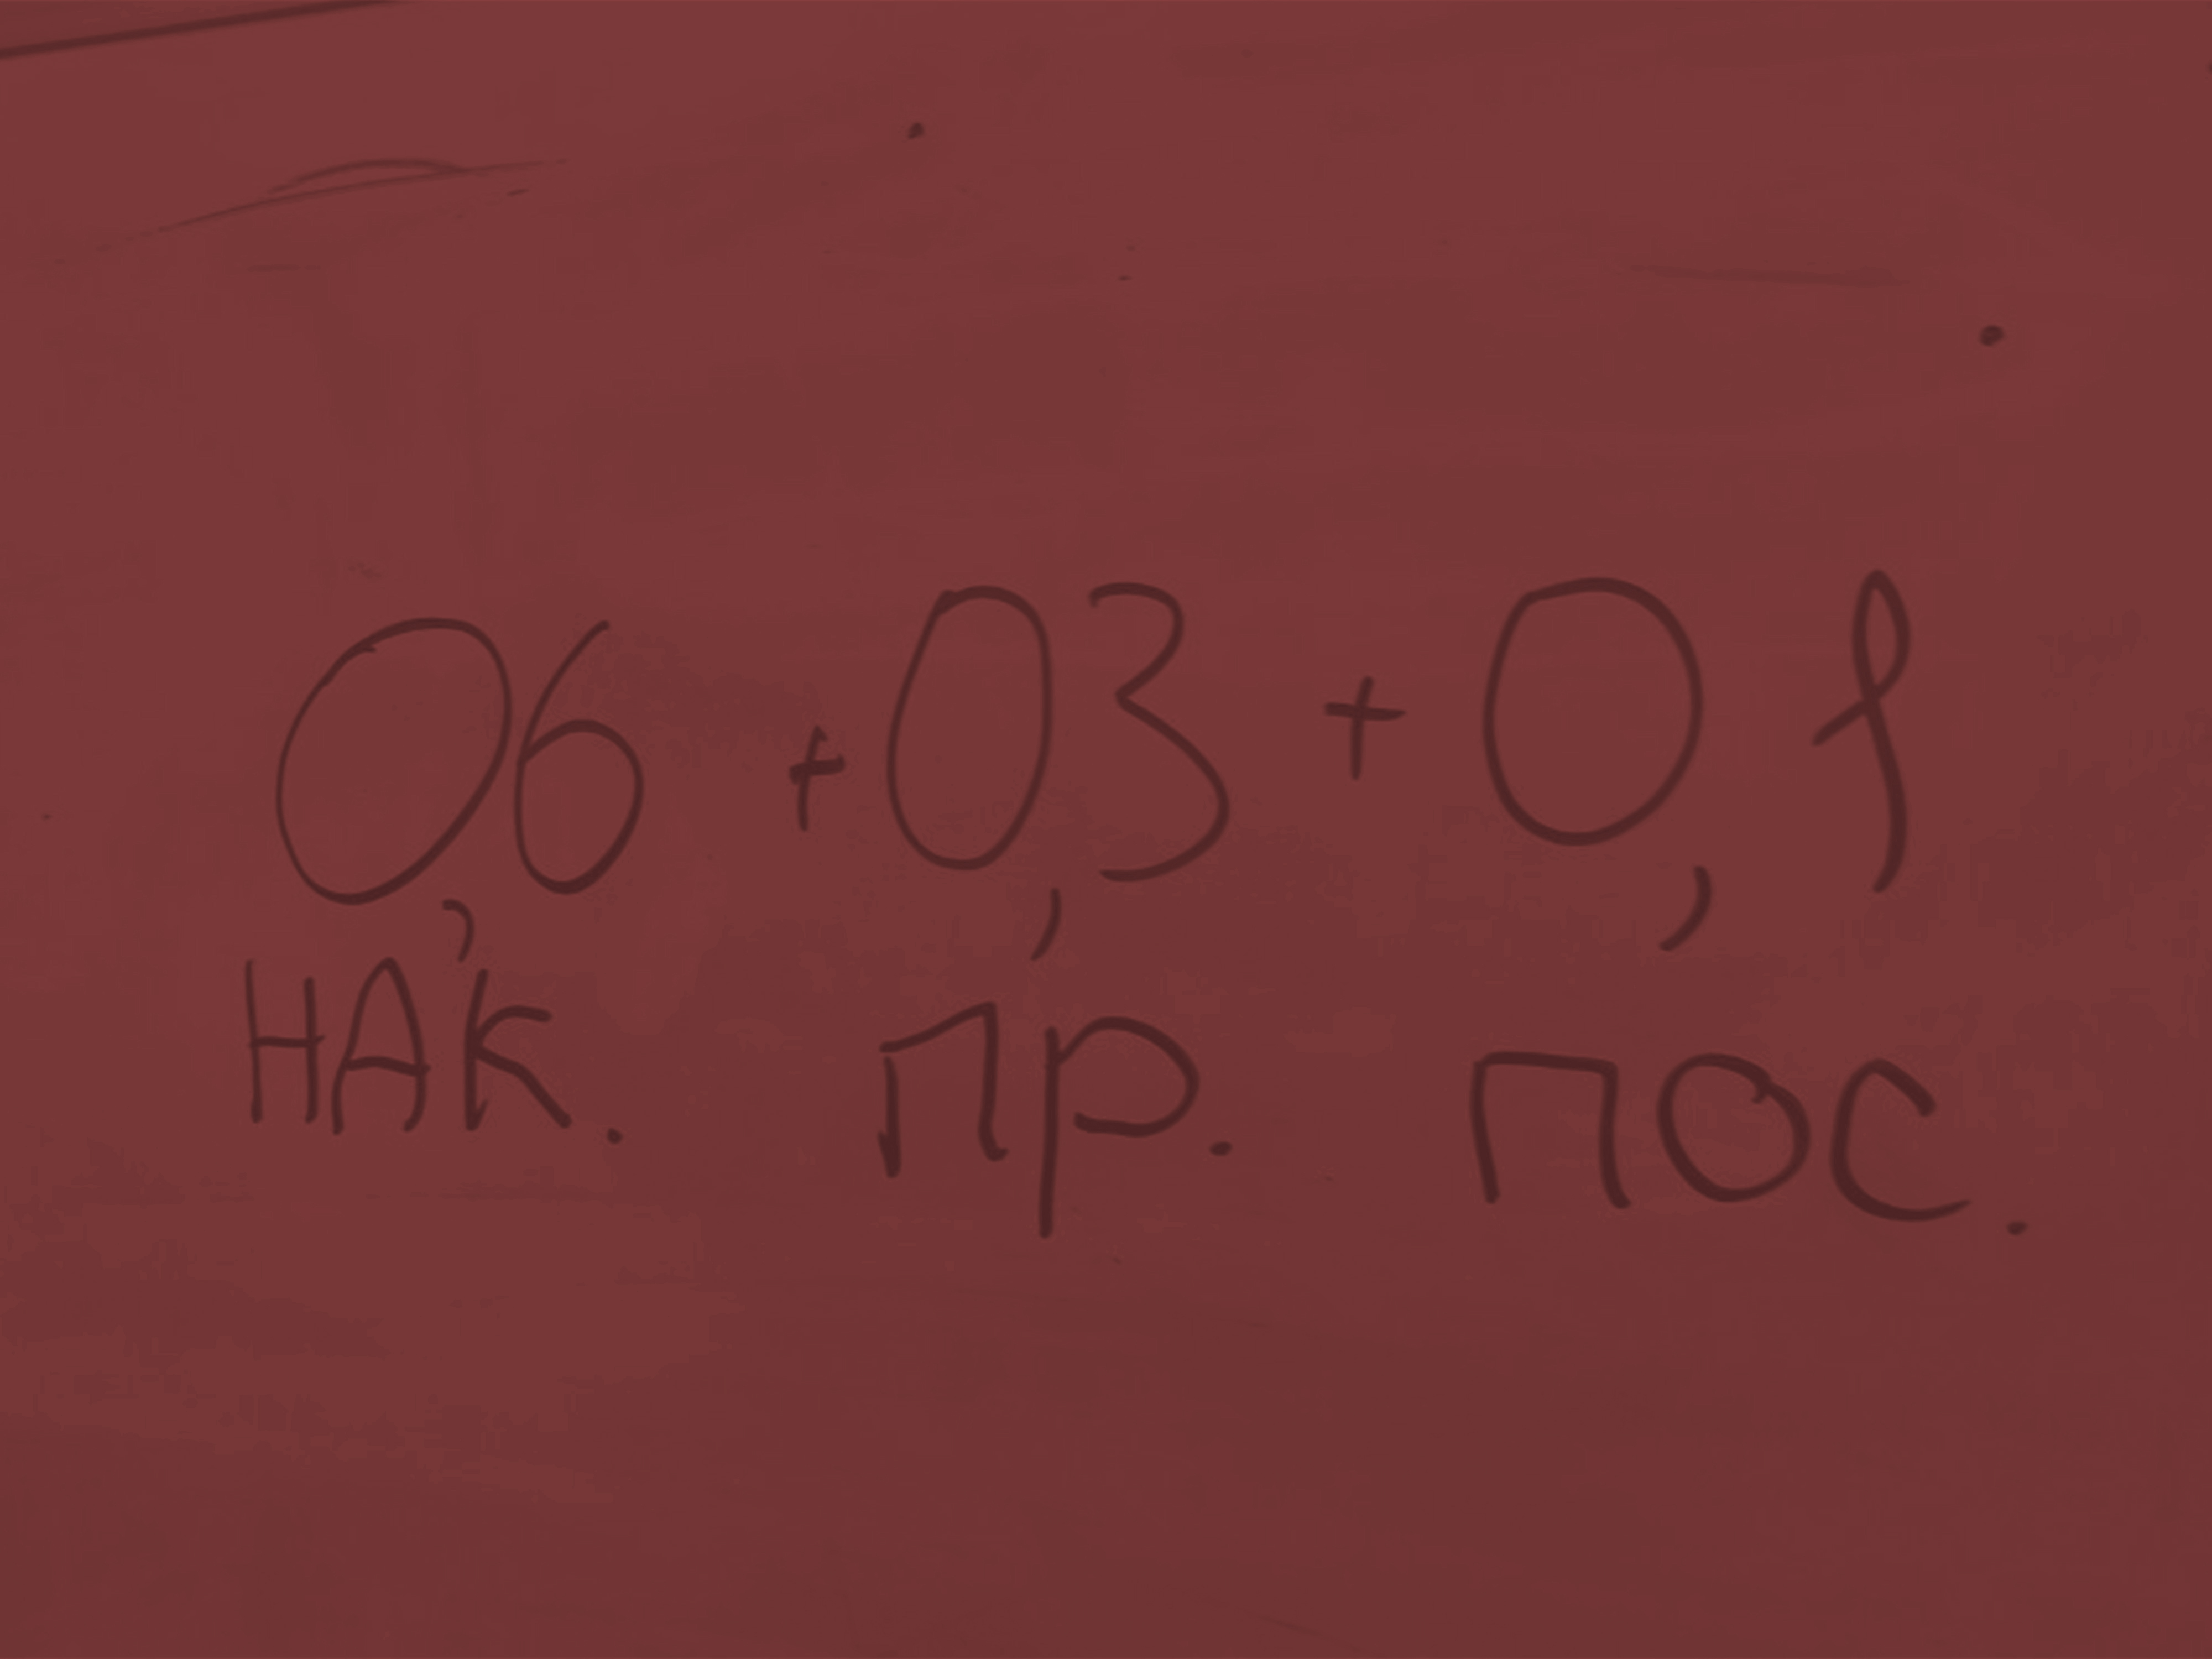 0,6 + 0,3 + 0,1
НАК. ПР. ПОС.